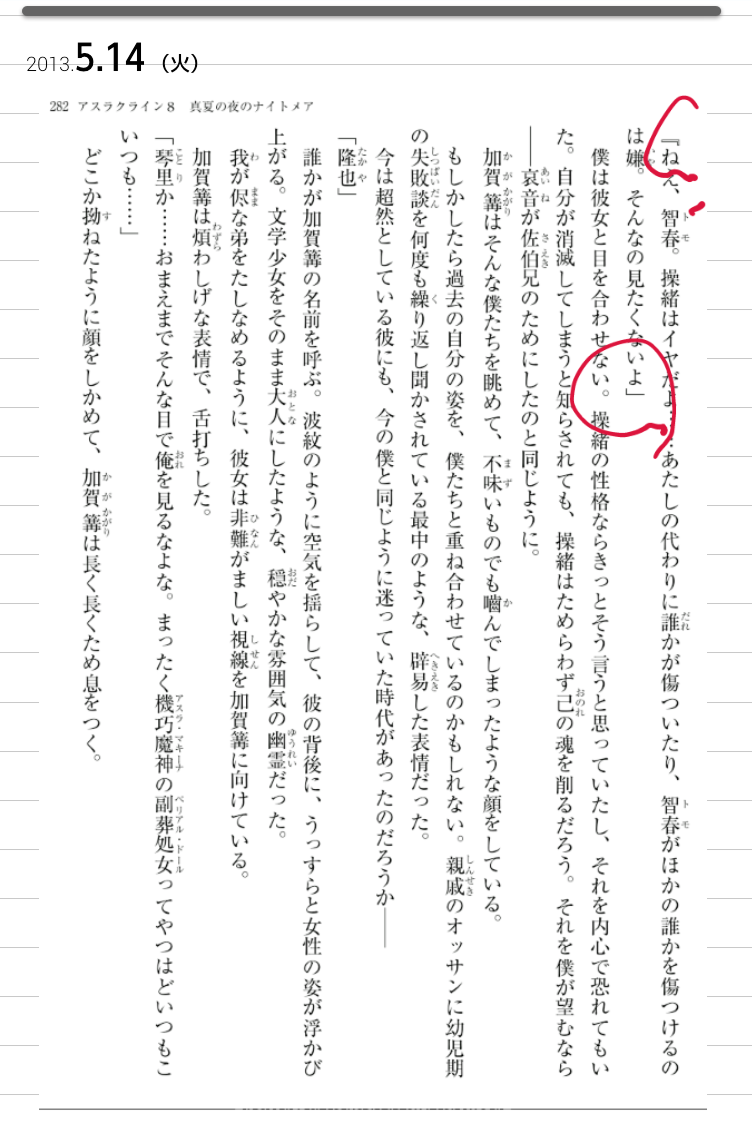 2013.5.14（火）
282 アスラクライン8　真夏の夜のナイトメア
『ねえ、智春。操緒はイヤだよ……あたしの代わりに誰かが傷ついたり、智春がほかの誰かを傷つけるの
は嫌。そんなの見たくないよ」
　僕は彼女と目を合わせない。操緒の性格ならきっとそう言うと思っていたし、それを内心で恐れてもい
た。自分が消滅してしまうと知らされても、操緒はためらわず己の魂を削るだろう。それを僕が望むなら
――哀音が佐伯兄のためにしたのと同じように。
　加賀篝はそんな僕たちを眺めて、不味いものでも嚙んでしまったような顔をしている。
　もしかしたら過去の自分の姿を、僕たちと重ね合わせているのかもしれない。親戚のオッサンに幼児期
の失敗談を何度も繰り返し聞かされている最中のような、辟易した表情だった。
　今は超然としている彼にも、今の僕と同じように迷っていた時代があったのだろうか――
「隆也」
　誰かが加賀篝の名前を呼ぶ。波紋のように空気を揺らして、彼の背後に、うっすらと女性の姿が浮かび
上がる。文学少女をそのまま大人にしたような、穏やかな雰囲気の幽霊だった。
　我が侭な弟をたしなめるように、彼女は非難がましい視線を加賀篝に向けている。
　加賀篝は煩わしげな表情で、舌打ちした。
「琴里か……おまえまでそんな目で俺を見るなよな。まったく機巧魔神の副葬処女ってやつはどいつもこ
いつも……」
　どこか拗ねたように顔をしかめて、加賀篝は長く長くため息をつく。